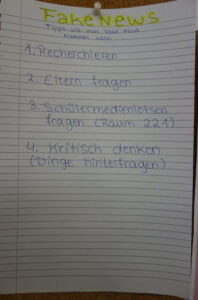 Fake News
Tipps, wie man Fake News
erkennen kann
1. Recherchieren
2. Eltern fragen
3. Schülermedienlotsen
fragen (Raum 221)
4. Kritisch denken
(Dinge hinterfragen)